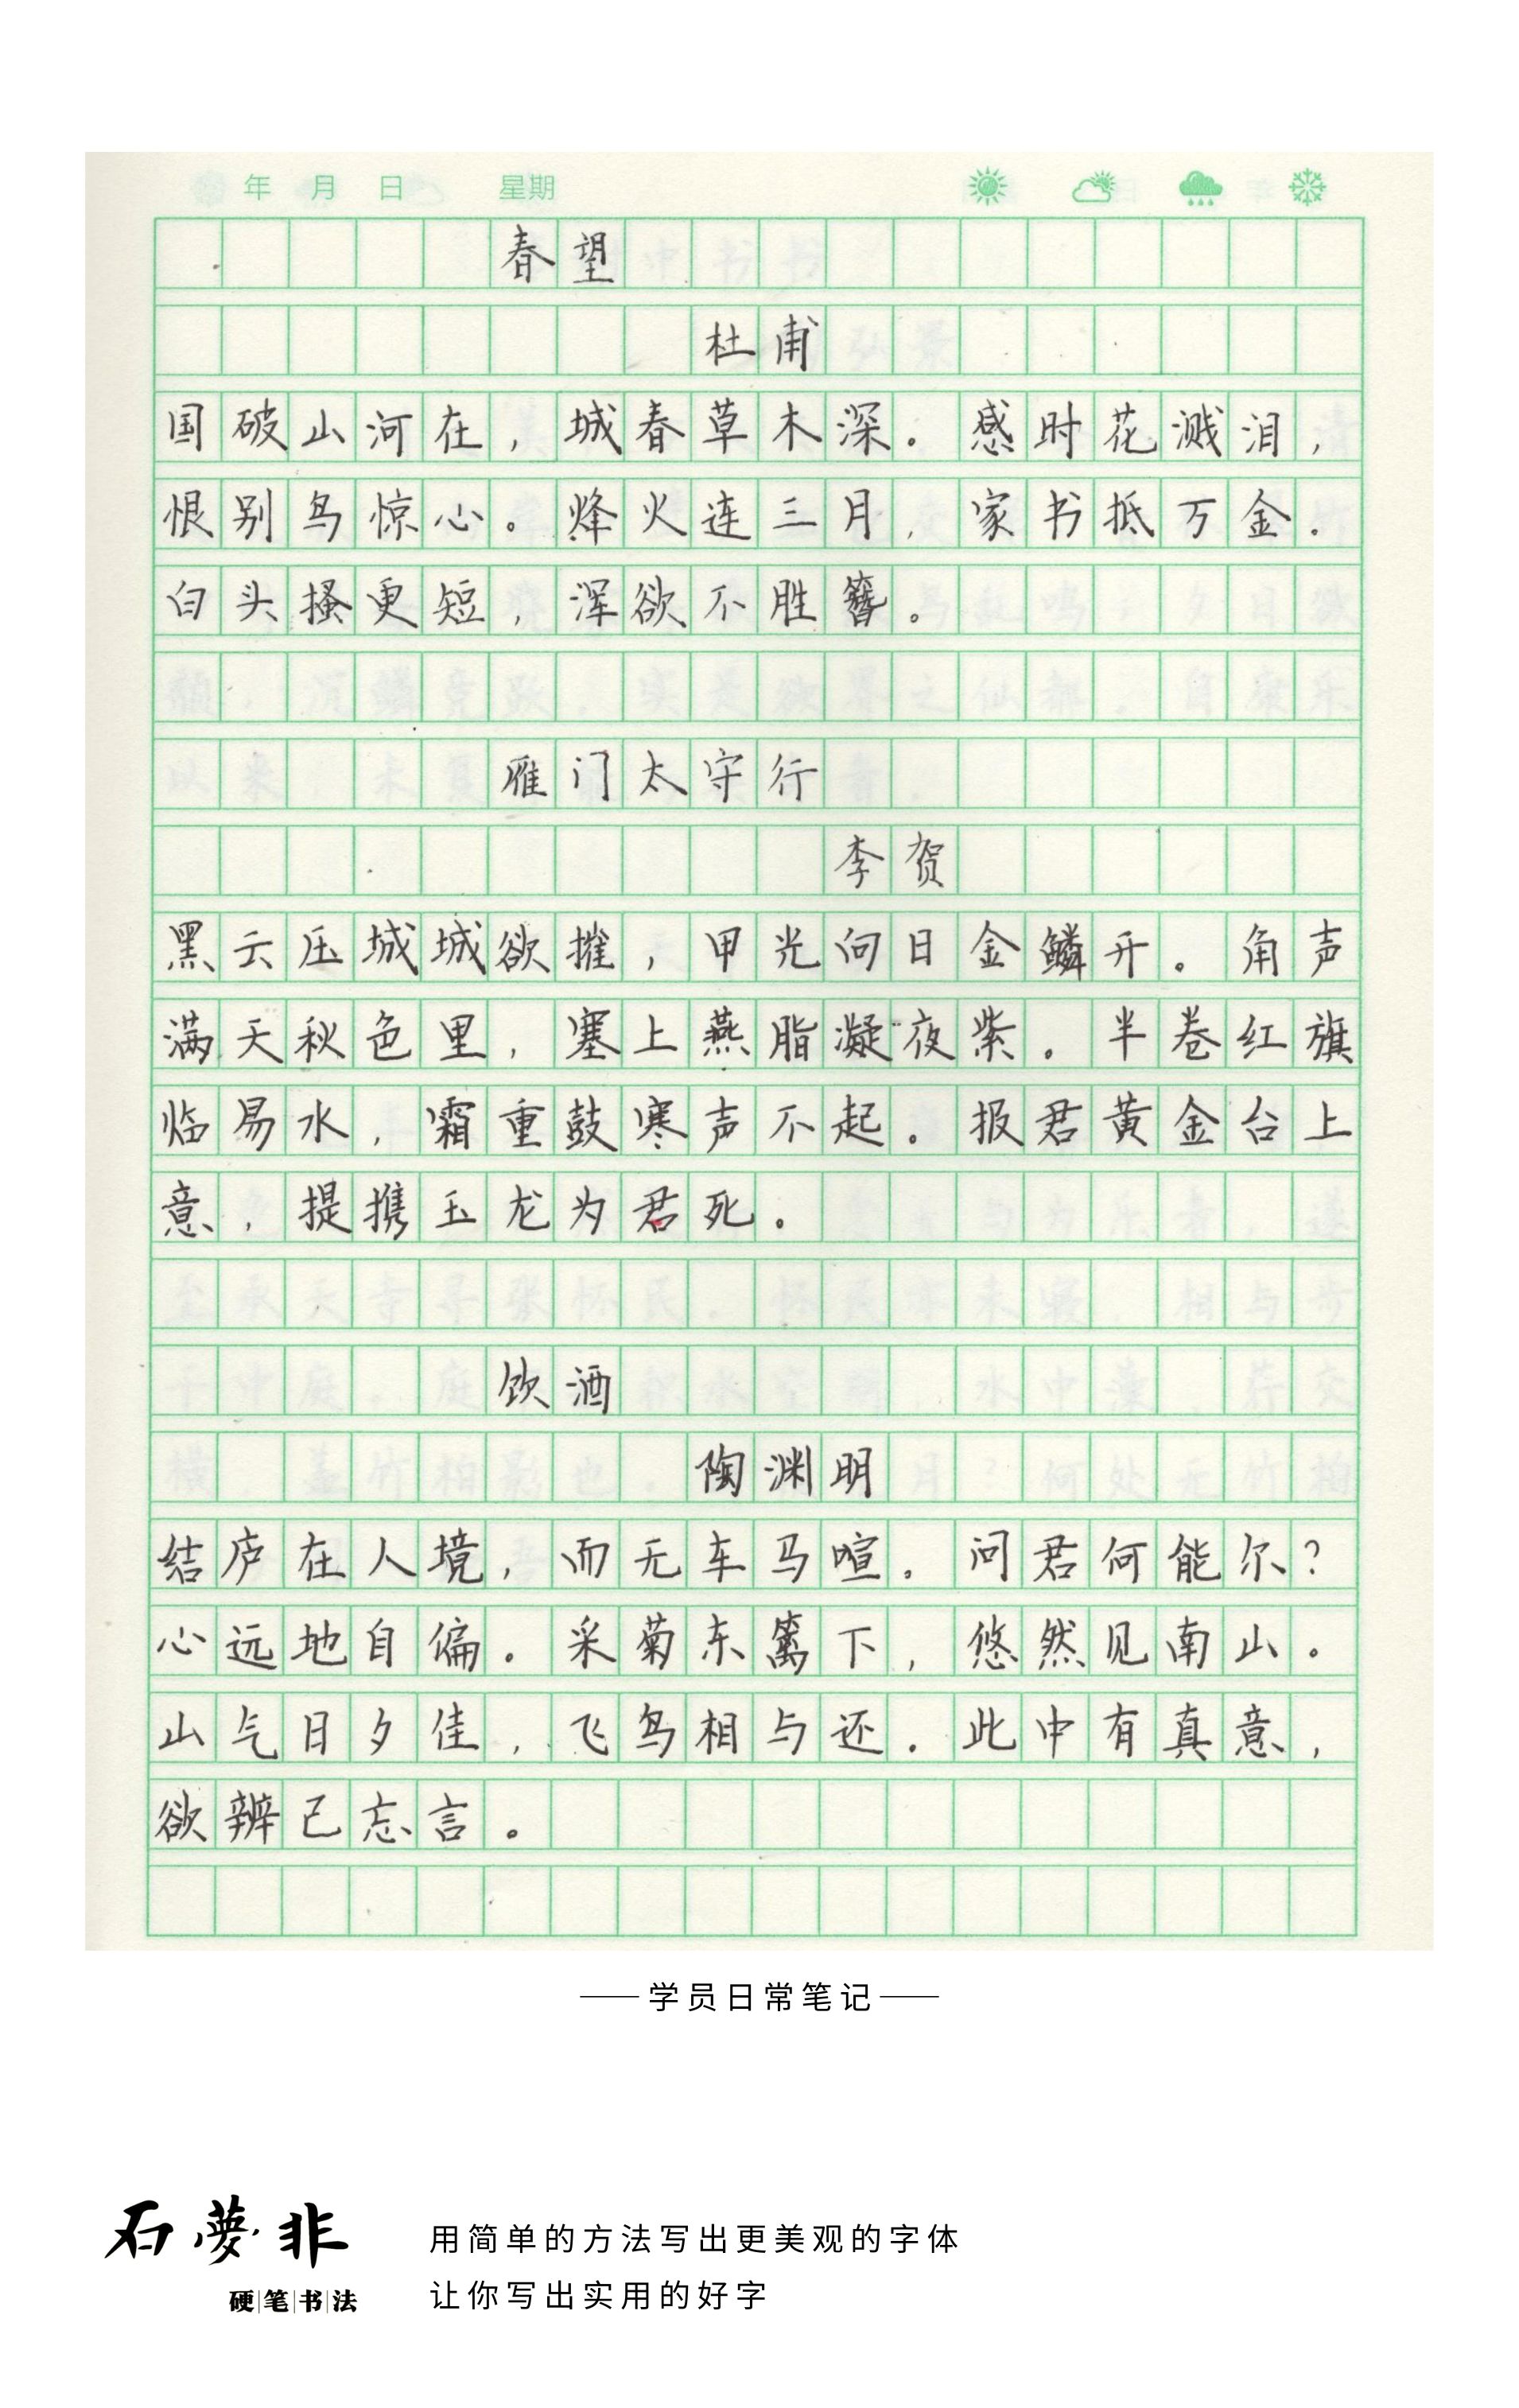 年 月 日 星期
春望
杜甫
国破山河在，城春草木深。感时花溅泪，
恨别鸟惊心。烽火连三月，家书抵万金。
白头搔更短，浑欲不胜簪。
雁门太守行
李贺
黑云压城城欲摧，甲光向日金鳞开。角声
满天秋色里，塞上燕脂凝夜紫。半卷红旗
临易水，霜重鼓寒声不起。报君黄金台上
意，提携玉龙为君死。
饮酒
陶渊明
结庐在人境，而无车马喧。问君何能尔？
心远地自偏。采菊东篱下，悠然见南山。
山气日夕佳，飞鸟相与还。此中有真意，
欲辨已忘言。
学员日常笔记
石夢非
硬笔书法
用简单的方法写出更美观的字体
让你写出实用的好字